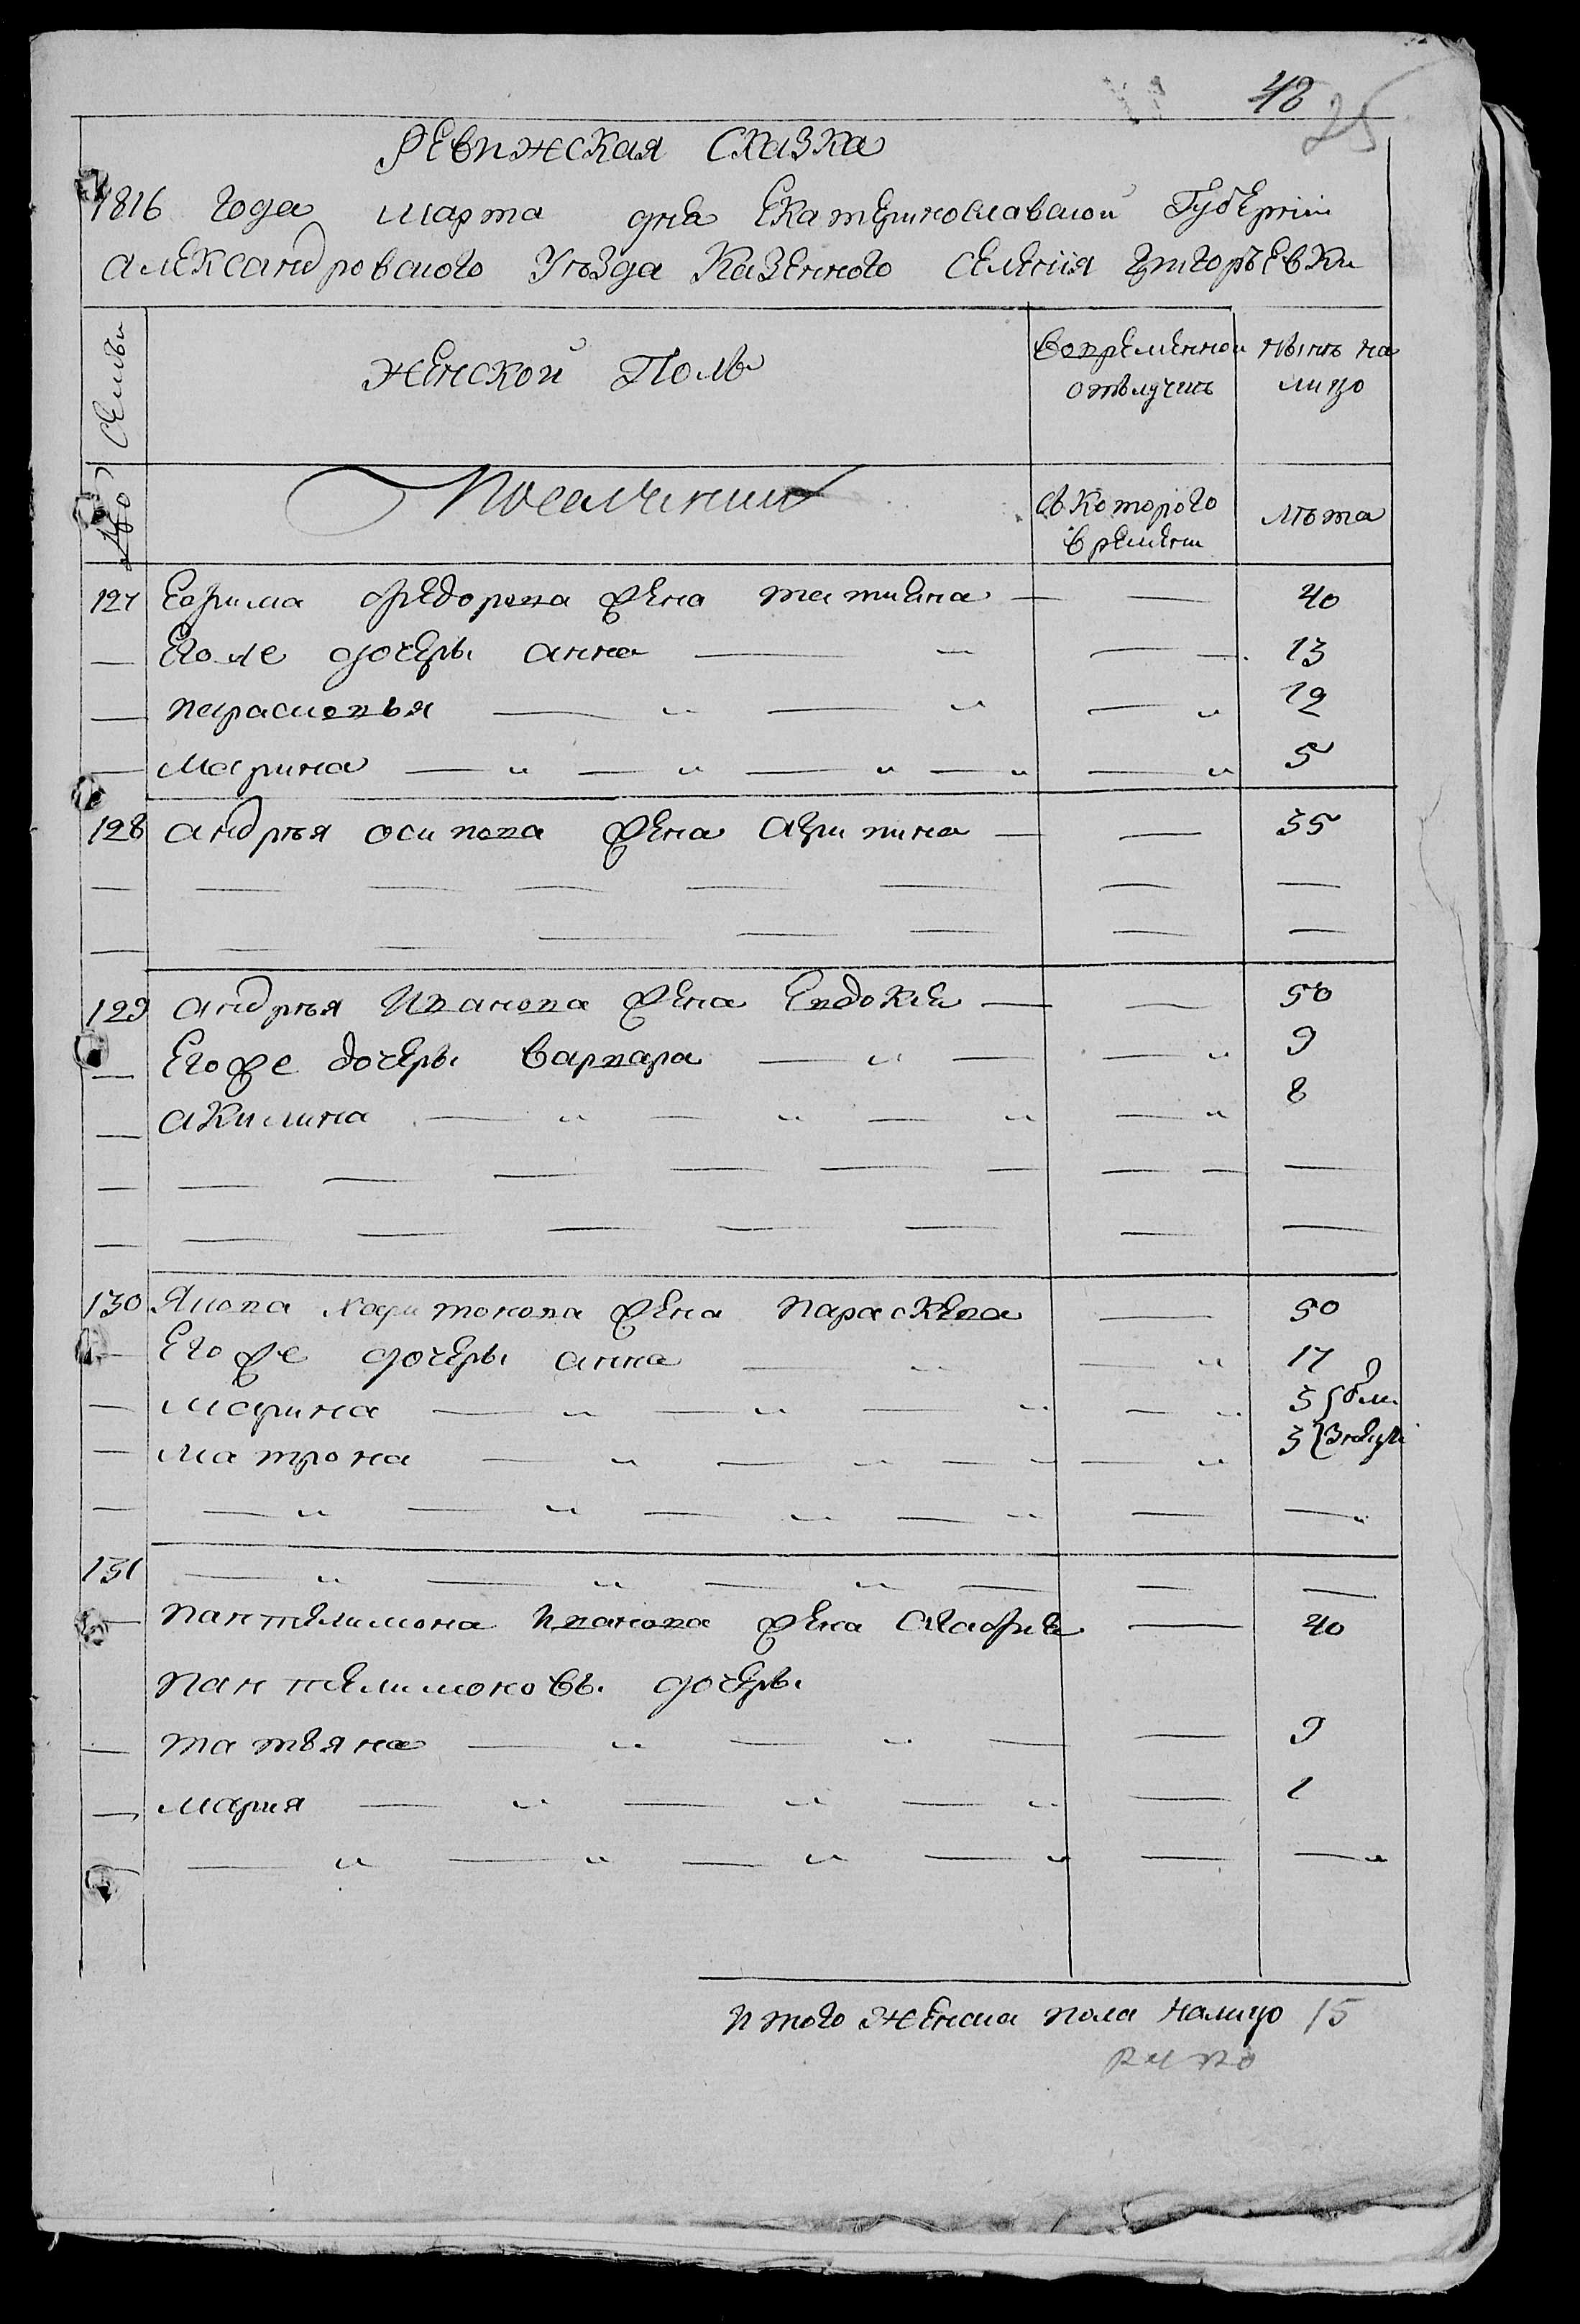 48
25
Ревижская Сказка
1816 Года Марта дня Екатеринославской Губернии
александровского Уѣзда Казенного селения григорьевки
№ Семьи
женской Полъ
Вовременной отълучкѣ
нынѣ на лицо
Поселянии
съ Которого времени
лѣта
127 Ефима Федорова жена татиена — — 40
— Его же дочерь анна — — — — 13
— парасковья — „ — „ — „ 12
— Марина — „ — „ — „ — „ — „ 5
128 андрѣя осипова жена агрипина — — 35
— — — — — — — —
— — — — — — — —
129 андрѣя Иванова жена Евдокие — — 50
— Егоже дочерь варвара — „ — — „ 9
— акилина — „ — „ — „ — „ 8
— — — — — — — — —
— — — — — — — —
130 Якова Харитонова жена параскева — 50
— Егоже дочерь анна — „ — „ 17
— Марина — „ — „ — „ — „ 3
— матрона — „ — „ — „ — „ 3
— — „ — „ — „ — „ — — „
131 — „ — „ — „ — — —
— пантелимона Иванова жена агафие — 40
пантелимоновы дочеры
— татьяна — „ — „ — — 9
— мария — „ — „ — „ — 1
— „ — „ — „ — „ — — „
Итого женска пола налицо 15